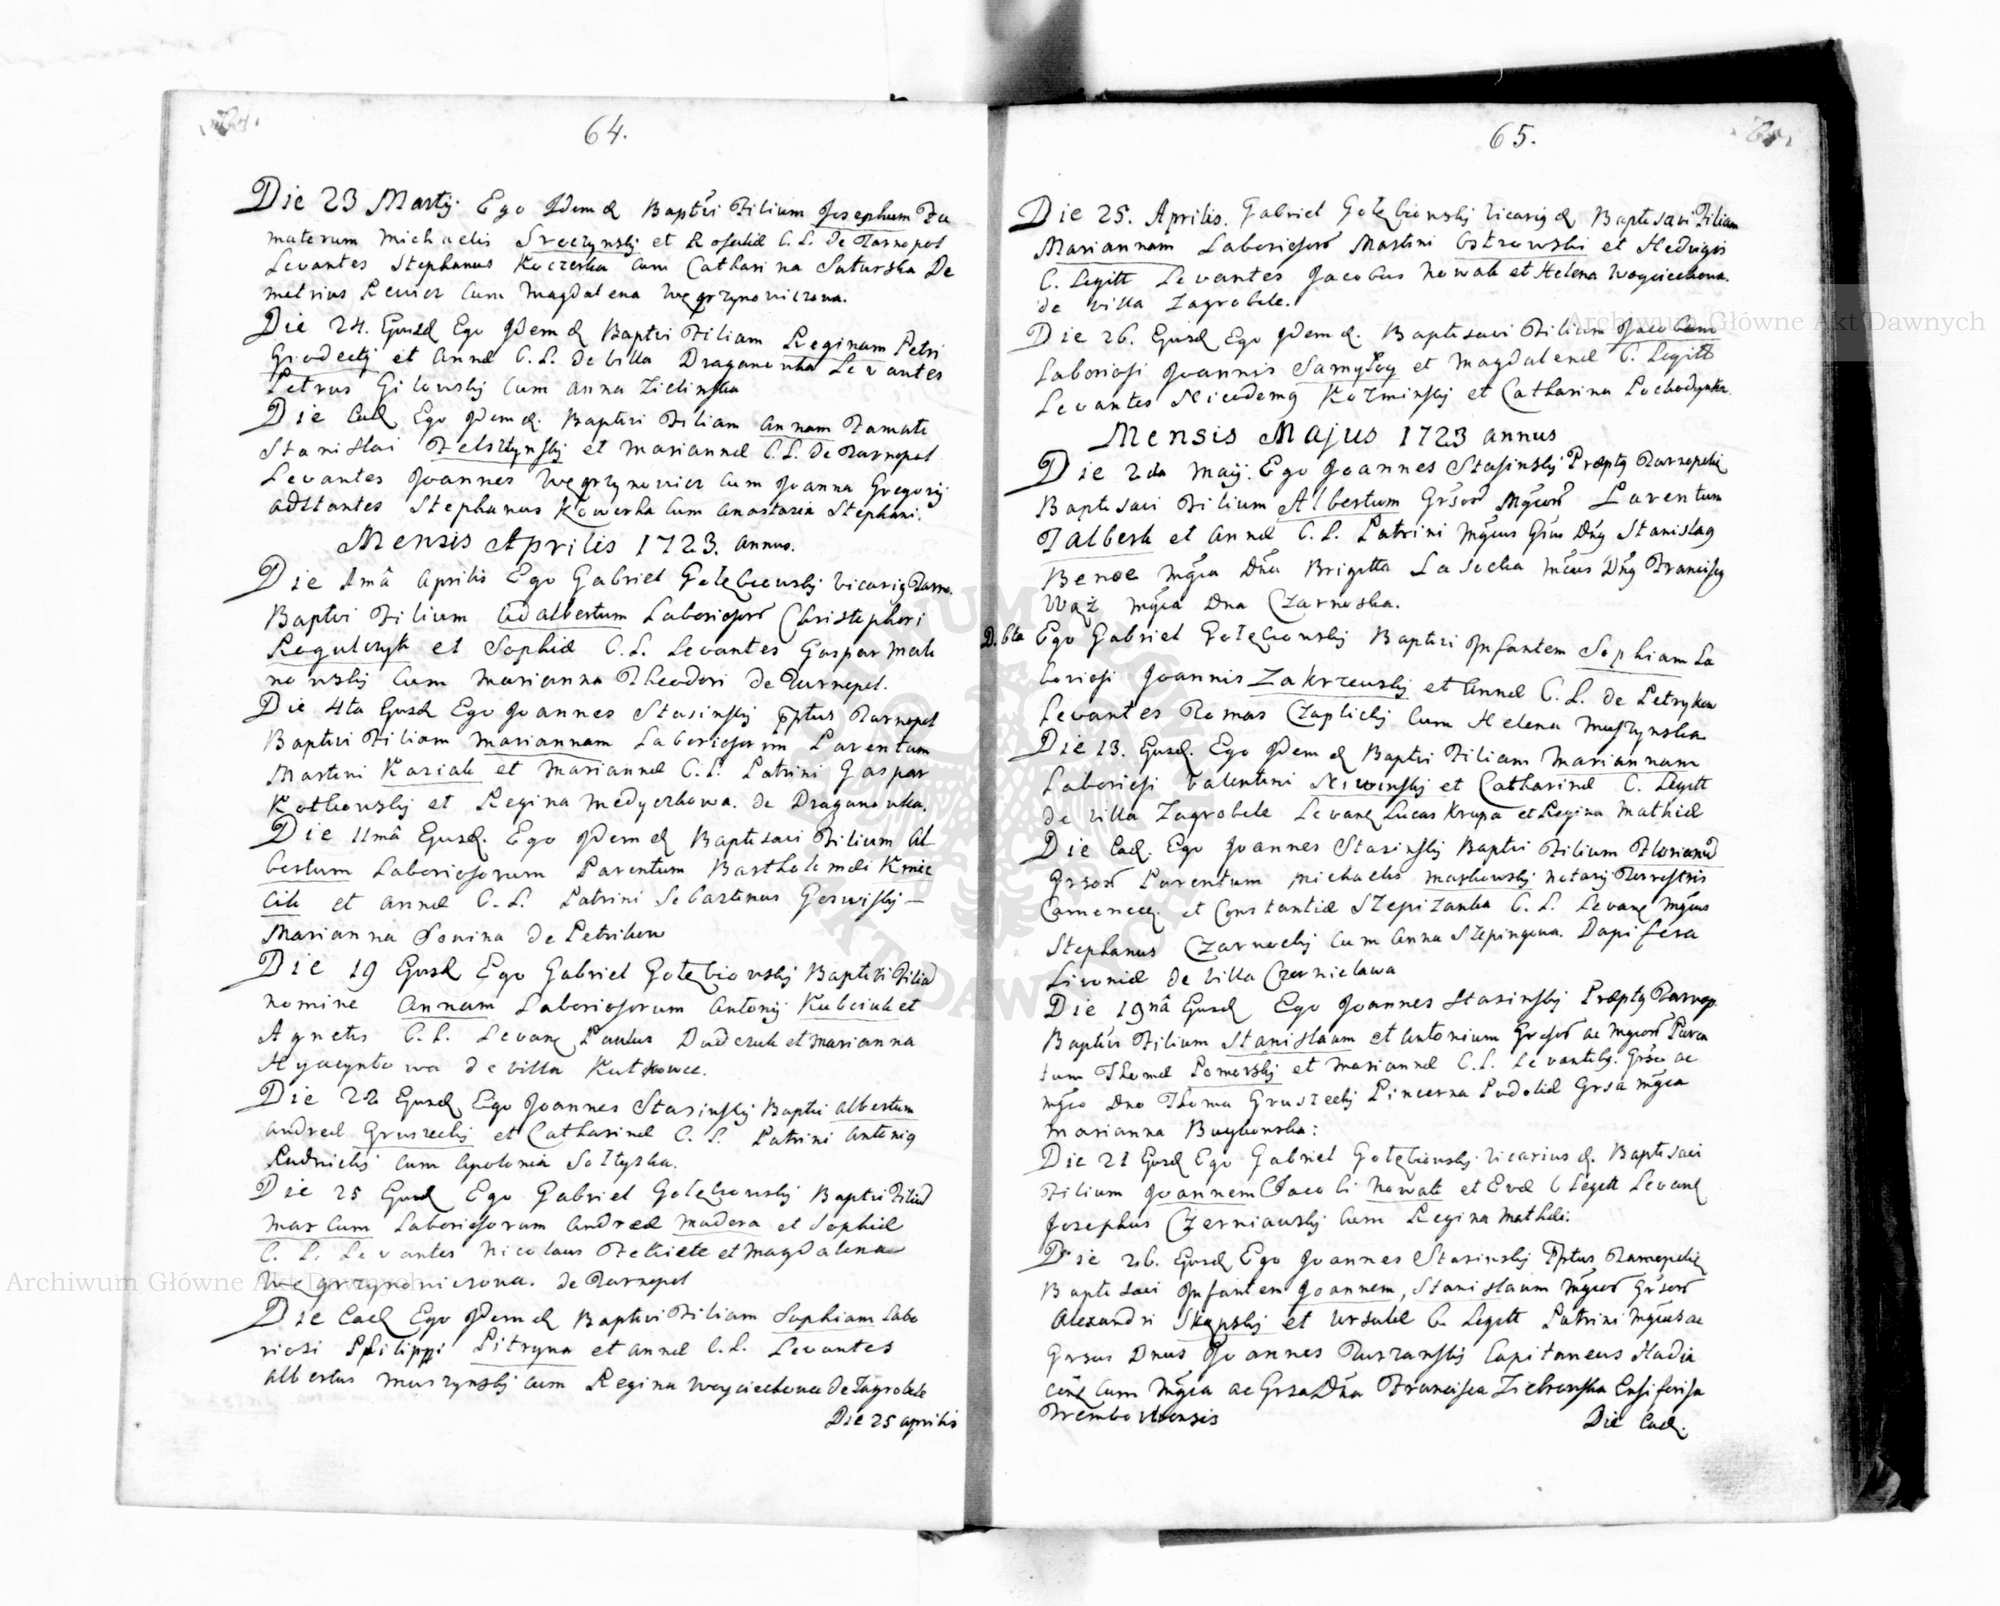 64.
Die 23 Martij. Ego Idem &. Bapt̄vi Filium Josephum Fa
materum Michaelis Sroczynskij et Rosaliæ C. L. de Tarnopol
Levantes Stephanus Koczerka cum Catharina Saturska De
metrius Lewicz cum Magdalena Węgrzynowiczowa.
Die 24. Ejusd Ego Idem & Baptvi Filiam Reginam Petri
Grodeckij et Annæ C. L. de Villa Draganowka Levantes
Petrus Gilowskij cum Anna Zielinska
Die Ead Ego Idem &. Baptivi Filiam Annam Famati
Stanislai Felsztynskij et Mariannæ C. L. de Tarnopol
Levantes Joannes Węgrzynowicz cum Joanna Gregorij
adstantes Stephanus Kowerka cum Anastazia Stephani.
Mensis Aprilis 1723. annus.
Die 1mâ Aprilis Ego Gabriel Gołębiowskij Vicarig Tarno.
Baptvi Filium Adalbertum Laboriosorō Christophori
Regulczyk et Sophiæ C. L. Levantes Gaspar Mali
nowskij cum Marianna Theodori de Tarnopol.
Die 4ta Ejusd Ego Joannes Stasinskij Pptus Tarnopol
Baptivi Filiam Mariannam Laboriosorum Parentum
Martini Koziak et Mariannæ C. L. Patrini Gaspar
Kotkowskij et Regina Medyczkowa. de Draganowka.
Die 11mâ Ejusd. Ego Idem & Baptisavi Filium Al
bertum Laboriosorum Parentum Bartholomæi Kmie
cik et Annæ C. L. Patrini Sebastianus Gerwiskij —
Marianna Sowina de Petrikow
Die 19 Ejusd Ego Gabriel Gołębiowskij Baptivi Filiā
nomine Annam Laboriosorum Antonij Kubciak et
Agnetis C. L. Levan Paulus Dudczuk et Marianna
Hyacyntowa de Villa Kutkowce.
Die 22 Ejusd Ego Joannes Stasinskij Baptvi Albertum
Andreæ Gruszeckij et Catharinæ C. L. Patrini Antonig
Rudnickij cum Apolonia Sołtyska.
Die 25 Ejusd Ego Gabriel Gołębiowskij Baptvi Filiū
Marcum Laboriosorum Andreæ Madera et Sophiæ
C. L. Levantes Nicolaus Felkiete et Magdalena
Węgrzynowiczowa. de Tarnopol
Die Ead Ego Idem & Baptivi Filiam Sophiam Labo
riosi Philippi Pitryna et Annæ C. L. Levantes
Albertus Muszynskij cum Regina Woyciechowa de Zagrobele
Die 25 Aprilis
65.
Die 25. Aprilis. Gabriel Gołębiowskij Vicarig & Baptisavi Filiam
Mariannam Laboriosorō Martini Ostrowski et Hedvigis
C. Legitt Levantes Jacobus Nowak et Helena Woyciechowa.
de Villa Zagrobele.
Die 26. Ejusd Ego Idem &. Baptisavi Filium Jacobum
Laboriosi Joannis Samyłoy et Magdalenæ C. Legitt
Levantes Nicodemg Kozminskij et Catharina Pochodynka.
Mensis Majus 1723 annus
Die 2da Maij. Ego Joannes Stasinskij Præptg Tarnopolij
Baptisavi Filium Albertum Grsorō Mgcorō Parentum
Talberk et Annæ C. L. Patrini Mgcus Grsus Dng Stanislag
Benoe Mgca Dna Brigitta Lasocka Mcus Dng Franciscg
Wąż Mgca Dna Czarnoska.
D. 6ta Ego Gabriel Gołębiowskij Baptivi Infantem Sophiam La
boriosi Joannis Zakrzewskij et Annæ C. L. de Petrykow
Levantes Tomas Czaplickij cum Helena Muszynska
Die 13. Ejusd. Ego Idem & Baptivi Filiam Mariannam
Laboriosi Valentini Niwinskij et Catharinæ C. Legitt
de Villa Zagrobele Levan Lucas Krupa et Regina Mathiæ
Die Ead. Ego Joannes Stasinskij Baptvi Filium Florianū
Grsorō Parentum Michaelis Maskowskij Notarij Terrestris
Camenecen. et Constantiæ Szepizanka C. L. Levan Mgcus
Stephanus Czarnockij cum Anna Szepingowa. Dapifera
Livoniæ de Villa Czernielawa
Die 19nâ Ejusd Ego Joannes Stasinskij Præptg Tarnop.
Baptivi Filium Stanislaum et Antonium Grosorō ac Mgcorō Paren
tum Thomæ Pomorskij et Mariannæ C. L. Levantibg. Grso ac
Mgco Dno Thoma Gruszeckij Pincerna Podoliæ Grsa Mgca
Marianna Buykowska:
Die 21 Ejusd Ego Gabriel Gołębiowskij Vicarius &. Baptisavi
Filium Joannem Jacobi Nowak et Evæ C Legitt Levan
Josephus Czerniawskij cum Regina Mathæi.
Die 26. Ejusd Ego Joannes Stasinskij Pptus Tarnopolij
Baptisavi Infantem Joannem, Stanislaum Mgcorō Grsorō
Alexandri Skępskij et Ursulæ C. Legitt Patrini Mgcus ac
Grsus Dnus Joannes Turzanskij Capitaneus Hadia
cen cum Mgca ac Grsa Dna Francisca Ziebrowska Ensiferisa
Trembowlensis
Die Ead.
Archiwum Główne Akt Dawnych
Archiwum Główne Akt Dawnych